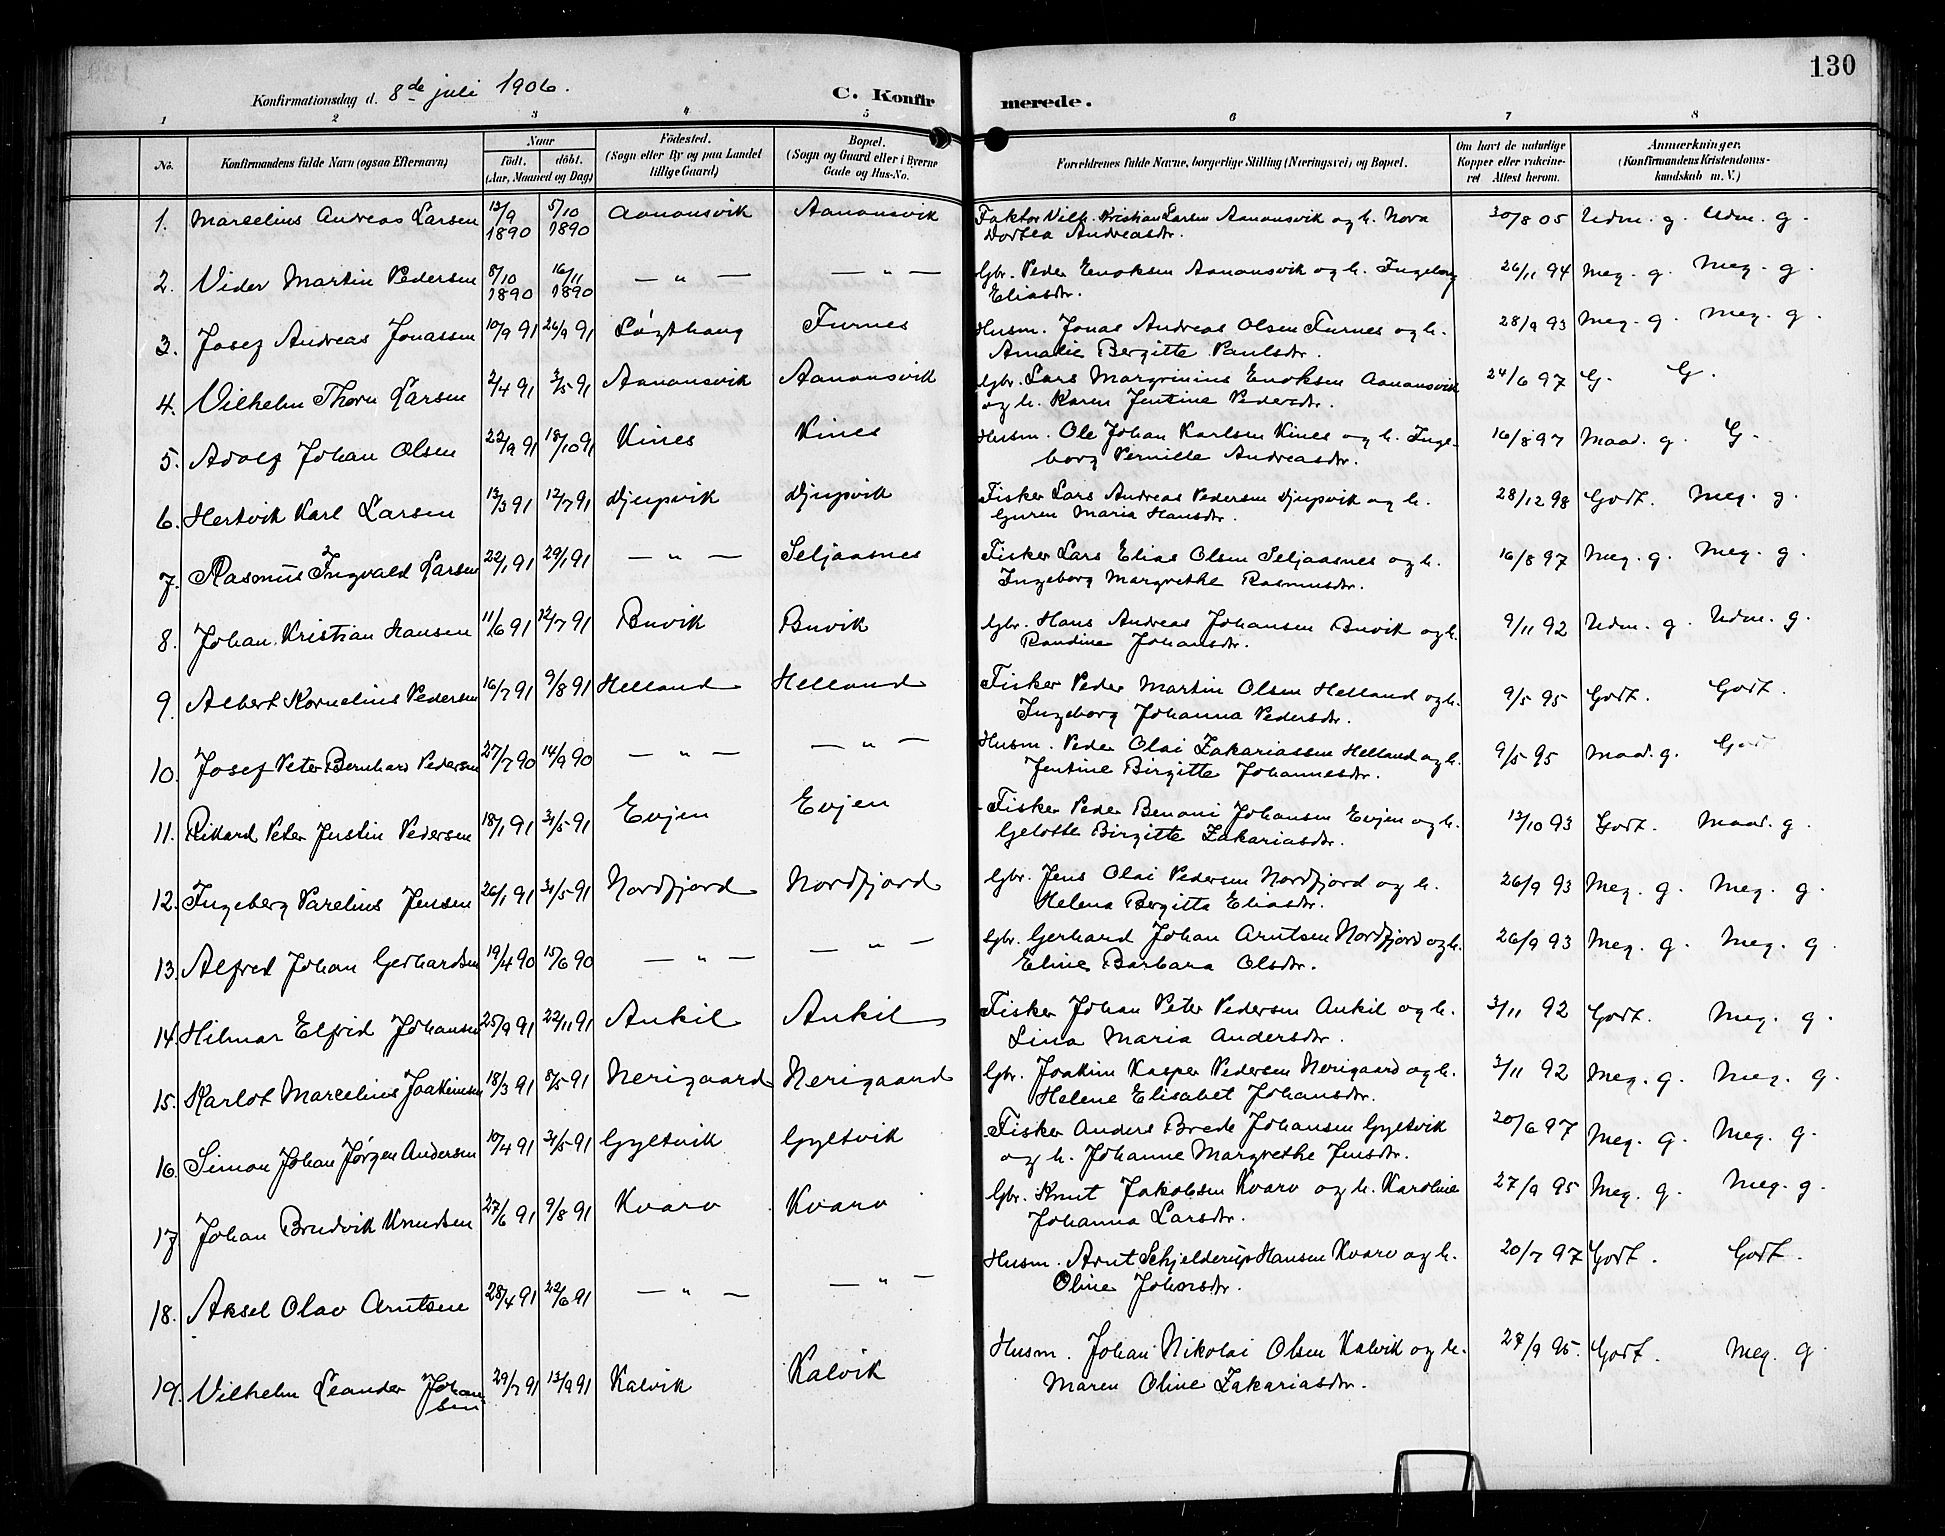 130
Konfirmationsdag d. 8de juli 1906.
C. Konfirmerede.
1 2 3 4 5 6 7 8
No. Konfirmandens fulde Navn (ogsaa Efternavn) Naar født. døbt. (Aar, Maaned og Dag) Fødested. (Sogn eller By og paa Landet tillige Gaard) Bopæl. (Sogn og Gaard eller i Byerne Gade og Hus-No. Forældrenes fulde Navne, borgerlige Stilling (Næringsvei) og Bopæl. Om havt de naturlige Kopper eller vakcineret. Attest herom. Anmærkninger. (Konfirmandens Kristendomskundskab m. V.)
1. Marcelius Andreas Larsen 12/9 1890 5/10 1890 Aanonsvik Aanonsvik Faktor Vilh. Kristian Larsen Aanonsvik og h. Nora
Dortea Andreasdtr. 30/8 05 Udm. g. Udm. g.
2. Vider Martin Pedersen 8/10 1890 16/11 1890 — " — — " — Gbr. Peder Enoksen Aanonsvik og h. Ingeborg
Eliasdtr. 26/11 94 Meg. g. Meg. g.
3. Josef Andreas Jonassen 10/9 91 26/9 91 Løgthaug Furnes Husm. Jonas Andreas Olsen Furnes og h.
Amalie Bergitte Paulsdtr. 28/9 93 Meg. g. Meg. g.
4. Vilhelm Thorn Larsen 2/4 91 3/5 91 Aanonsvik Aanonsvik Gbr. Lars Margrinius Enoksen Aanonsvik
og h. Karen Jentine Pedersdtr. 24/6 97 G. G.
5. Adolf Johan Olsen 22/9 91 18/10 91 Vines Vines Husm. Ole Johan Karlsen Vines og h. Inge-
borg Pernille Andreasdtr. 16/8 97 Maad. g. G.
6. Hertvik Karl Larsen 13/3 91 12/7 91 Djupvik Djupvik Fisker Lars Andreas Pedersen Djupvik og h.
Guren Maria Hansdtr. 28/12 98 Godt. Meg. g.
7. Rasmus Ingvald Larsen 22/1 91 29/1 91 — " — Seljaasnes Fisker Lars Elias Olsen Seljaasnes og h.
Ingeborg Margrethe Rasmusdtr. 16/8 97 Meg. g. Meg. g.
8. Johan Kristian Hansen 11/6 91 12/7 91 Buvik Buvik Gbr. Hans Andreas Johansen Buvik og h.
Randine Johansdtr. 9/11 92 Udm. g. Udm. g.
9. Albert Kornelius Pedersen 16/7 91 9/8 91 Helland Helland Fisker Peder Martin Olsen Helland og h.
Ingeborg Johanna Pedersdtr. 9/5 95 Godt. Godt.
10. Josef Peter Bernhard Pedersen 27/7 90 14/9 90 — " — — " — Husm. Peder Olai Zakariassen Helland og h.
Jentine Birgitte Johannesdtr. 9/5 95 Maad. g. Godt
11. Rikard Peter Justin Pedersen 18/1 91 31/5 91 Evjen Evjen Fisker Peder Benoni Johansen Evjen og h.
Gelotte Birgitte Zakariasdtr. 13/10 93 Godt. Maad. g.
12. Ingeberg Parelius Jensen 26/1 91 31/5 91 Nordfjord Nordfjord Gbr. Jens Olai Pedersen Nordfjord og h.
Helena Bergitta Eliasdtr. 26/9 93 Meg. g. Meg. g.
13. Alfred Johan Gerhardsen 19/4 90 15/6 90 — " — — " — Gbr. Gerhard Johan Arntsen Nordfjord og h.
Eline Barbara Olsdtr. 26/9 93 Meg. g. Meg. g.
14. Hilmar Elfrid Johansen 25/9 91 22/11 91 Ankil Ankil Fisker Johan Peter Pedersen Ankil og h.
Lina Maria Andersdtr. 3/11 92 Godt. Meg. g.
15. Karlot Marcelius Joakimsen 18/3 91 8/5 91 Nerigaard Nerigaard Gbr. Joakim Kasper Pedersen Nerigaard og h.
Helene Elisabet Johansdtr. 3/11 92 Meg. g. Meg. g.
16. Simon Johan Jørgen Andersen 10/4 91 31/5 91 Gyltvik Gyltvik Fisker Anders Brede Johansen Gyltvik
og h. Johanne Margrethe Jensdtr. 20/6 97 Meg. g. Meg. g.
17. Johan Brudvik Knudsen 27/6 91 9/8 91 Kvarv Kvarv Gbr. Knut Jakobsen Kvarv og h. Karoline
Johanna Larsdtr. 27/9 95 Meg. g. Meg. g.
18. Aksel Olav Arntsen 28/4 91 22/6 91 — " — — " — Husm. Arnt Schjelderup Hansen Kvarv og h.
Oline Johnsdtr. 20/7 97 Godt. Godt.
19. Vilhelm Leander Johansen 29/7 91 13/9 91 Kalvik Kalvik Husm. Johan Nikolai Olsen Kalvik og h.
Maren Oline Zakariasdtr. 27/9 95. Godt. Meg. g.